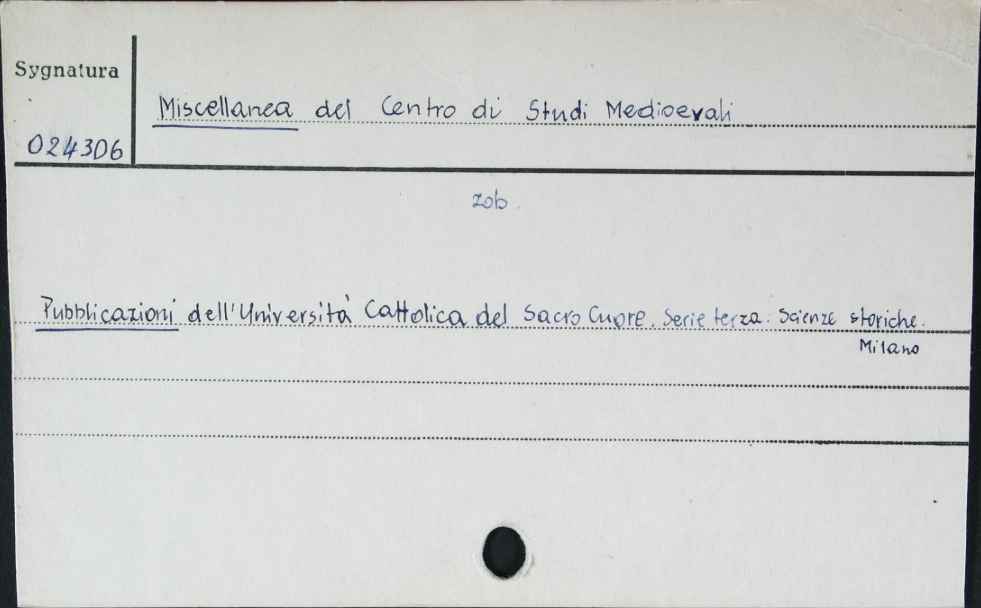 Sygnatura
Miscellanea del Centro di Studi Medioevali
024306
zob.
Pubblicazioni dell'Università Cattolica del Sacro Cuore. Serie terza: Scienze storiche.
Milano